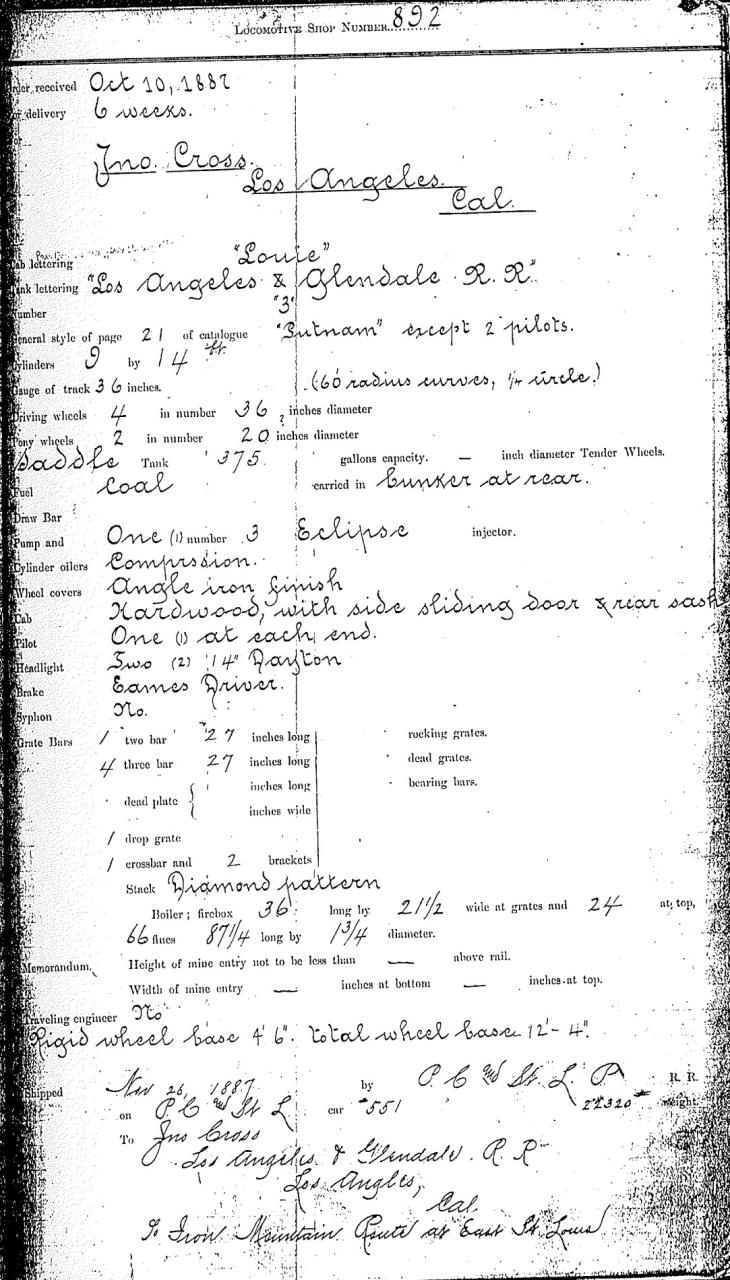 LOCOMOTIVE SHOP NUMBER 892
Order received Oct 10, 1887
delivery 6 weeks.
Jno. Cross.
Los Angeles.
Cal.
Cab lettering "Louie"
Tank lettering "Los Angeles & Glendale R. R."
Number "3"
General style of page 21 of catalogue "Putnam" except 2 pilots.
Cylinders 9 by 14
Gauge of track 36 inches. (60 radius curves, 1/4 circle.)
Driving wheels 4 in number 36 inches diameter
Pony wheels 2 in number 20 inches diameter
Saddle Tank 375 gallons capacity. — inch diameter Tender Wheels.
Fuel Coal carried in bunker at rear.
Draw Bar
Pump and One (1) number 3 Eclipse injector.
Cylinder oilers Comprssion.
Wheel covers Angle iron finish
Cab Hardwood, with side sliding door & rear sash
Pilot One (1) at each end.
Headlight Two (2) 14" Dayton
Brake Eames Driver.
Syphon No.
Grate Bars 1 two bar 27 inches long rocking grates.
4 three bar 27 inches long dead grates.
dead plate { inches long bearing bars.
inches wide
1 drop grate
1 crossbar and 2 brackets
Stack Diamond pattern
Boiler; firebox 36 long by 21 1/2 wide at grates and 24 at top,
66 flues 87 1/4 long by 1 3/4 diameter.
Memorandum. Height of mine entry not to be less than — above rail.
Width of mine entry — inches at bottom — inches at top.
Traveling engineer No
Rigid wheel base 4' 6". total wheel base 12'- 4".
Shipped Nov 26, 1887 by P. C and St. L. R. R.
on P C and St L car #551 22320# weight.
To Jno Cross
Los Angeles & Glendale. R R
Los Angles,
Cal.
To Iron Mountain Route at East St. Louis